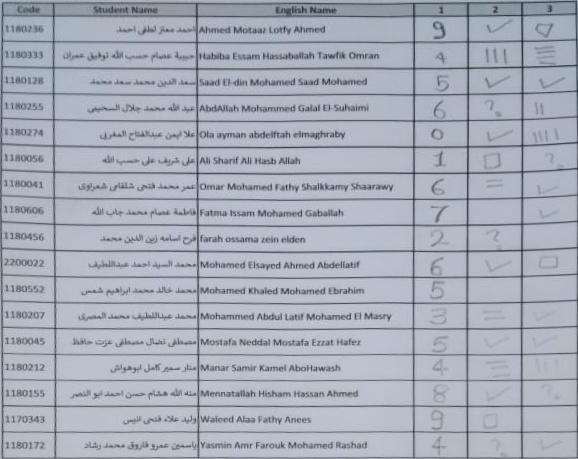 Code Student Name English Name 1 2 3
1180236 احمد معتز لطفى احمد Ahmed Motaaz Lotfy Ahmed 9 ✓
1180333 حبيبة عصام حسب الله توفيق عمران Habiba Essam Hassaballah Tawfik Omran 4 |||
1180128 سعد الدين محمد سعد محمد Saad El-din Mohamed Saad Mohamed 5 ✓ ✓
1180255 عبد الله محمد جلال السحيمى AbdAllah Mohammed Galal El-Suhaimi 6 ? ||
1180274 علا ايمن عبدالفتاح المغربى Ola ayman abdelftah elmaghraby 0 ✓ ||||
1180056 على شريف على حسب الله Ali Sharif Ali Hasb Allah 1 □ ?
1180041 عمر محمد فتحى شلقامى شعراوى Omar Mohamed Fathy Shalkkamy Shaarawy 6 = ✓
1180606 فاطمة عصام محمد جاب الله Fatma Issam Mohamed Gaballah 7 ✓
1180456 فرح اسامه زين الدين محمد farah ossama zein elden 2 ?
2200022 محمد السيد احمد عبداللطيف Mohamed Elsayed Ahmed Abdellatif 6 ✓ □
1180552 محمد خالد محمد ابراهيم شمس Mohamed Khaled Mohamed Ebrahim 5
1180207 محمد عبداللطيف محمد المصرى Mohammed Abdul Latif Mohamed El Masry 3 = ✓
1180045 مصطفى نضال مصطفى عزت حافظ Mostafa Neddal Mostafa Ezzat Hafez 5 ✓ ✓
1180212 منار سمير كامل ابوهواش Manar Samir Kamel AboHawash 4 ☰ |||
1180155 منه الله هشام حسن احمد ابو النصر Mennatallah Hisham Hassan Ahmed 8 ✓ ?
1170343 وليد علاء فتحى انيس Waleed Alaa Fathy Anees 9 □
1180172 ياسمين عمرو فاروق محمد رشاد Yasmin Amr Farouk Mohamed Rashad 4 ? ✓